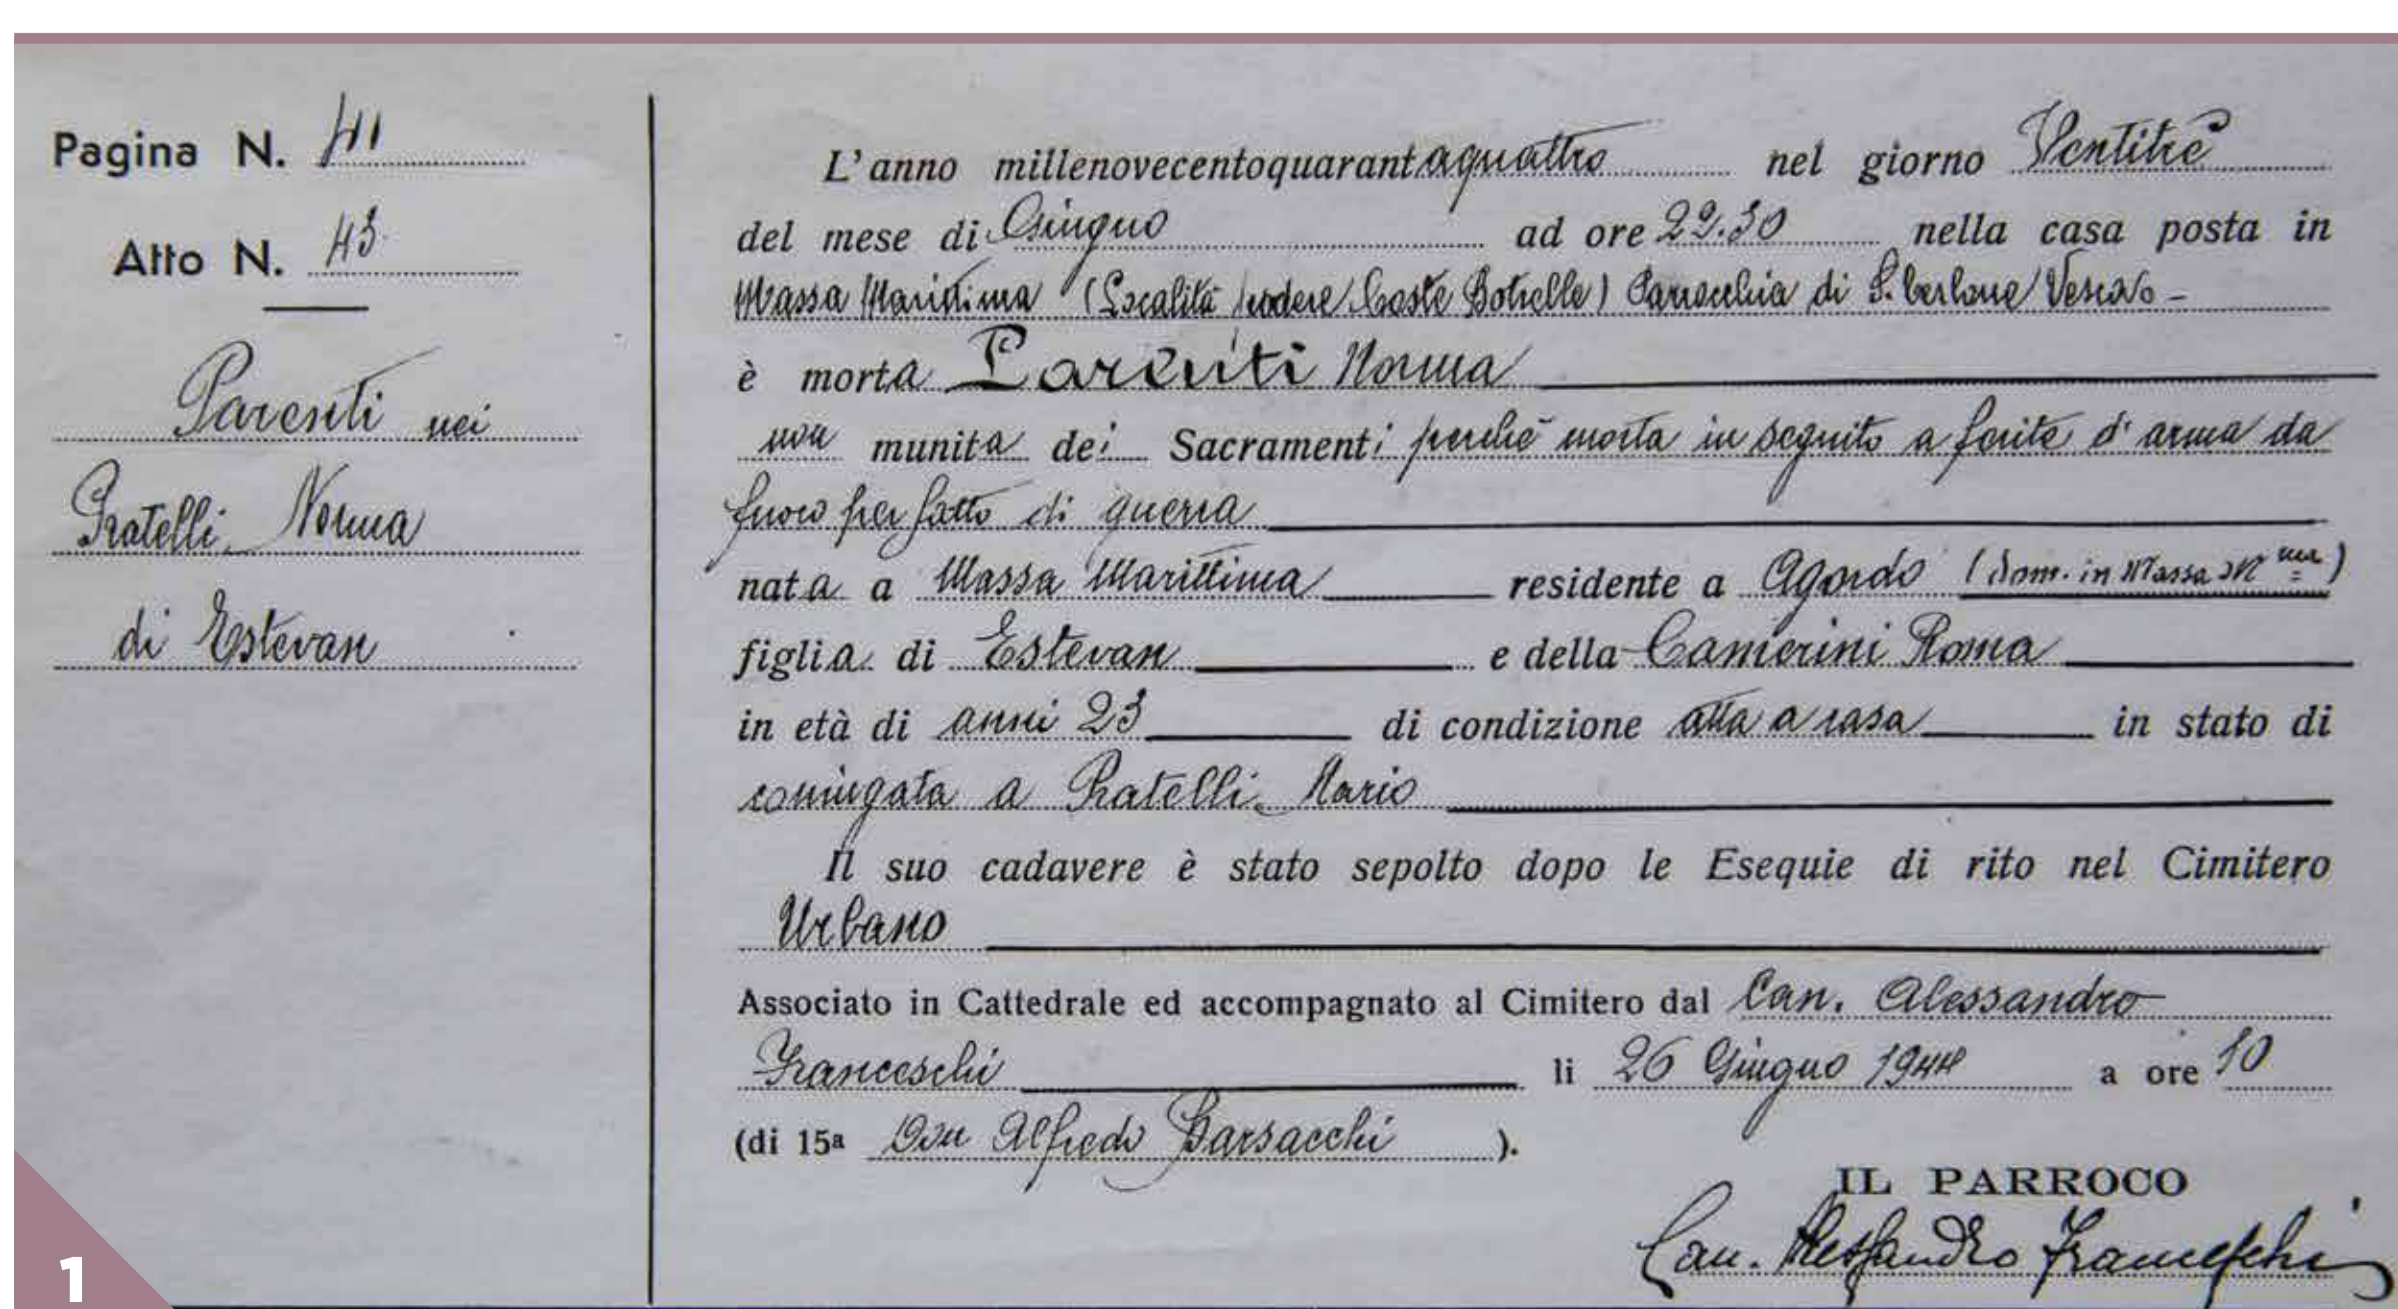 Pagina N. 41
Atto N. 43.
Parenti nei
Pratelli Norma
di Estevan
L'anno millenovecentoquarantaquattro nel giorno Ventitrè
del mese di Giugno ad ore 22.30 nella casa posta in
Massa Marittima (Località podere Coste Botrelle) Parrocchia di S. Cerbone Vescovo -
è morta Parenti Norma
non munita dei Sacramenti perchè morta in seguito a ferite d'arma da
fuoco per fatto di guerra
nata a Massa Marittima residente a Agordo (dom. in Massa Mma)
figlia di Estevan e della Camerini Roma
in età di anni 23 di condizione atta a casa in stato di
coniugata a Pratelli Mario
Il suo cadavere è stato sepolto dopo le Esequie di rito nel Cimitero
Urbano
Associato in Cattedrale ed accompagnato al Cimitero dal Can. Alessandro
Franceschi li 26 Giugno 1944 a ore 10
(di 15a Don Alfredo Barsacchi ).
IL PARROCO
Can. Alessandro Franceschi
1